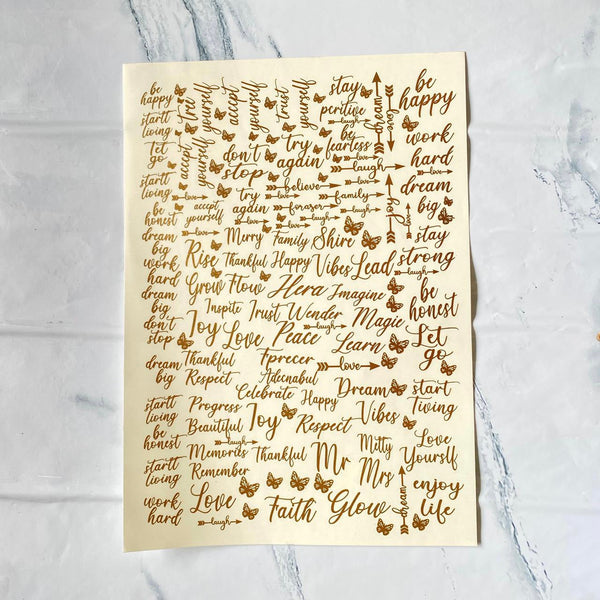 be
happy
startt
living
Let
go
startt
living
be
honest
dream
big
work
hard
dream
big
don't
stop
dream
big
startt
living
be
honest
startt
living
work
hard
trei
yourself
accept
yourself
accept
yourself
trust
yourself
don't
stop
try
again
stay
peritive
laugh
be
fearless
love
laugh
dream
love
be
happy
work
hard
dream
big
stay
strong
laugh
be
honest
Let
go
start
Tiving
Love
Yourslf
enjoy
life
love
believe
love
love
family
love
accept
yourself
try
again
love
foraser
laugh
love
love
laugh
love
joy
Merry Family Shire
Rise Thankful Happy Vibes Lead
Grow Flow Hera Imagine
Inspite Trust Wender Magic
Joy Love Peace laugh Learn
Thankful Fprecer love
Respect Adecnabul
Celebrate Happy Dream
Progress Joy Respect Vibes
Beautiful
laugh
Memories Thankful Mr Mitty
Remember Mrs
Love Faith Glow dream
laugh